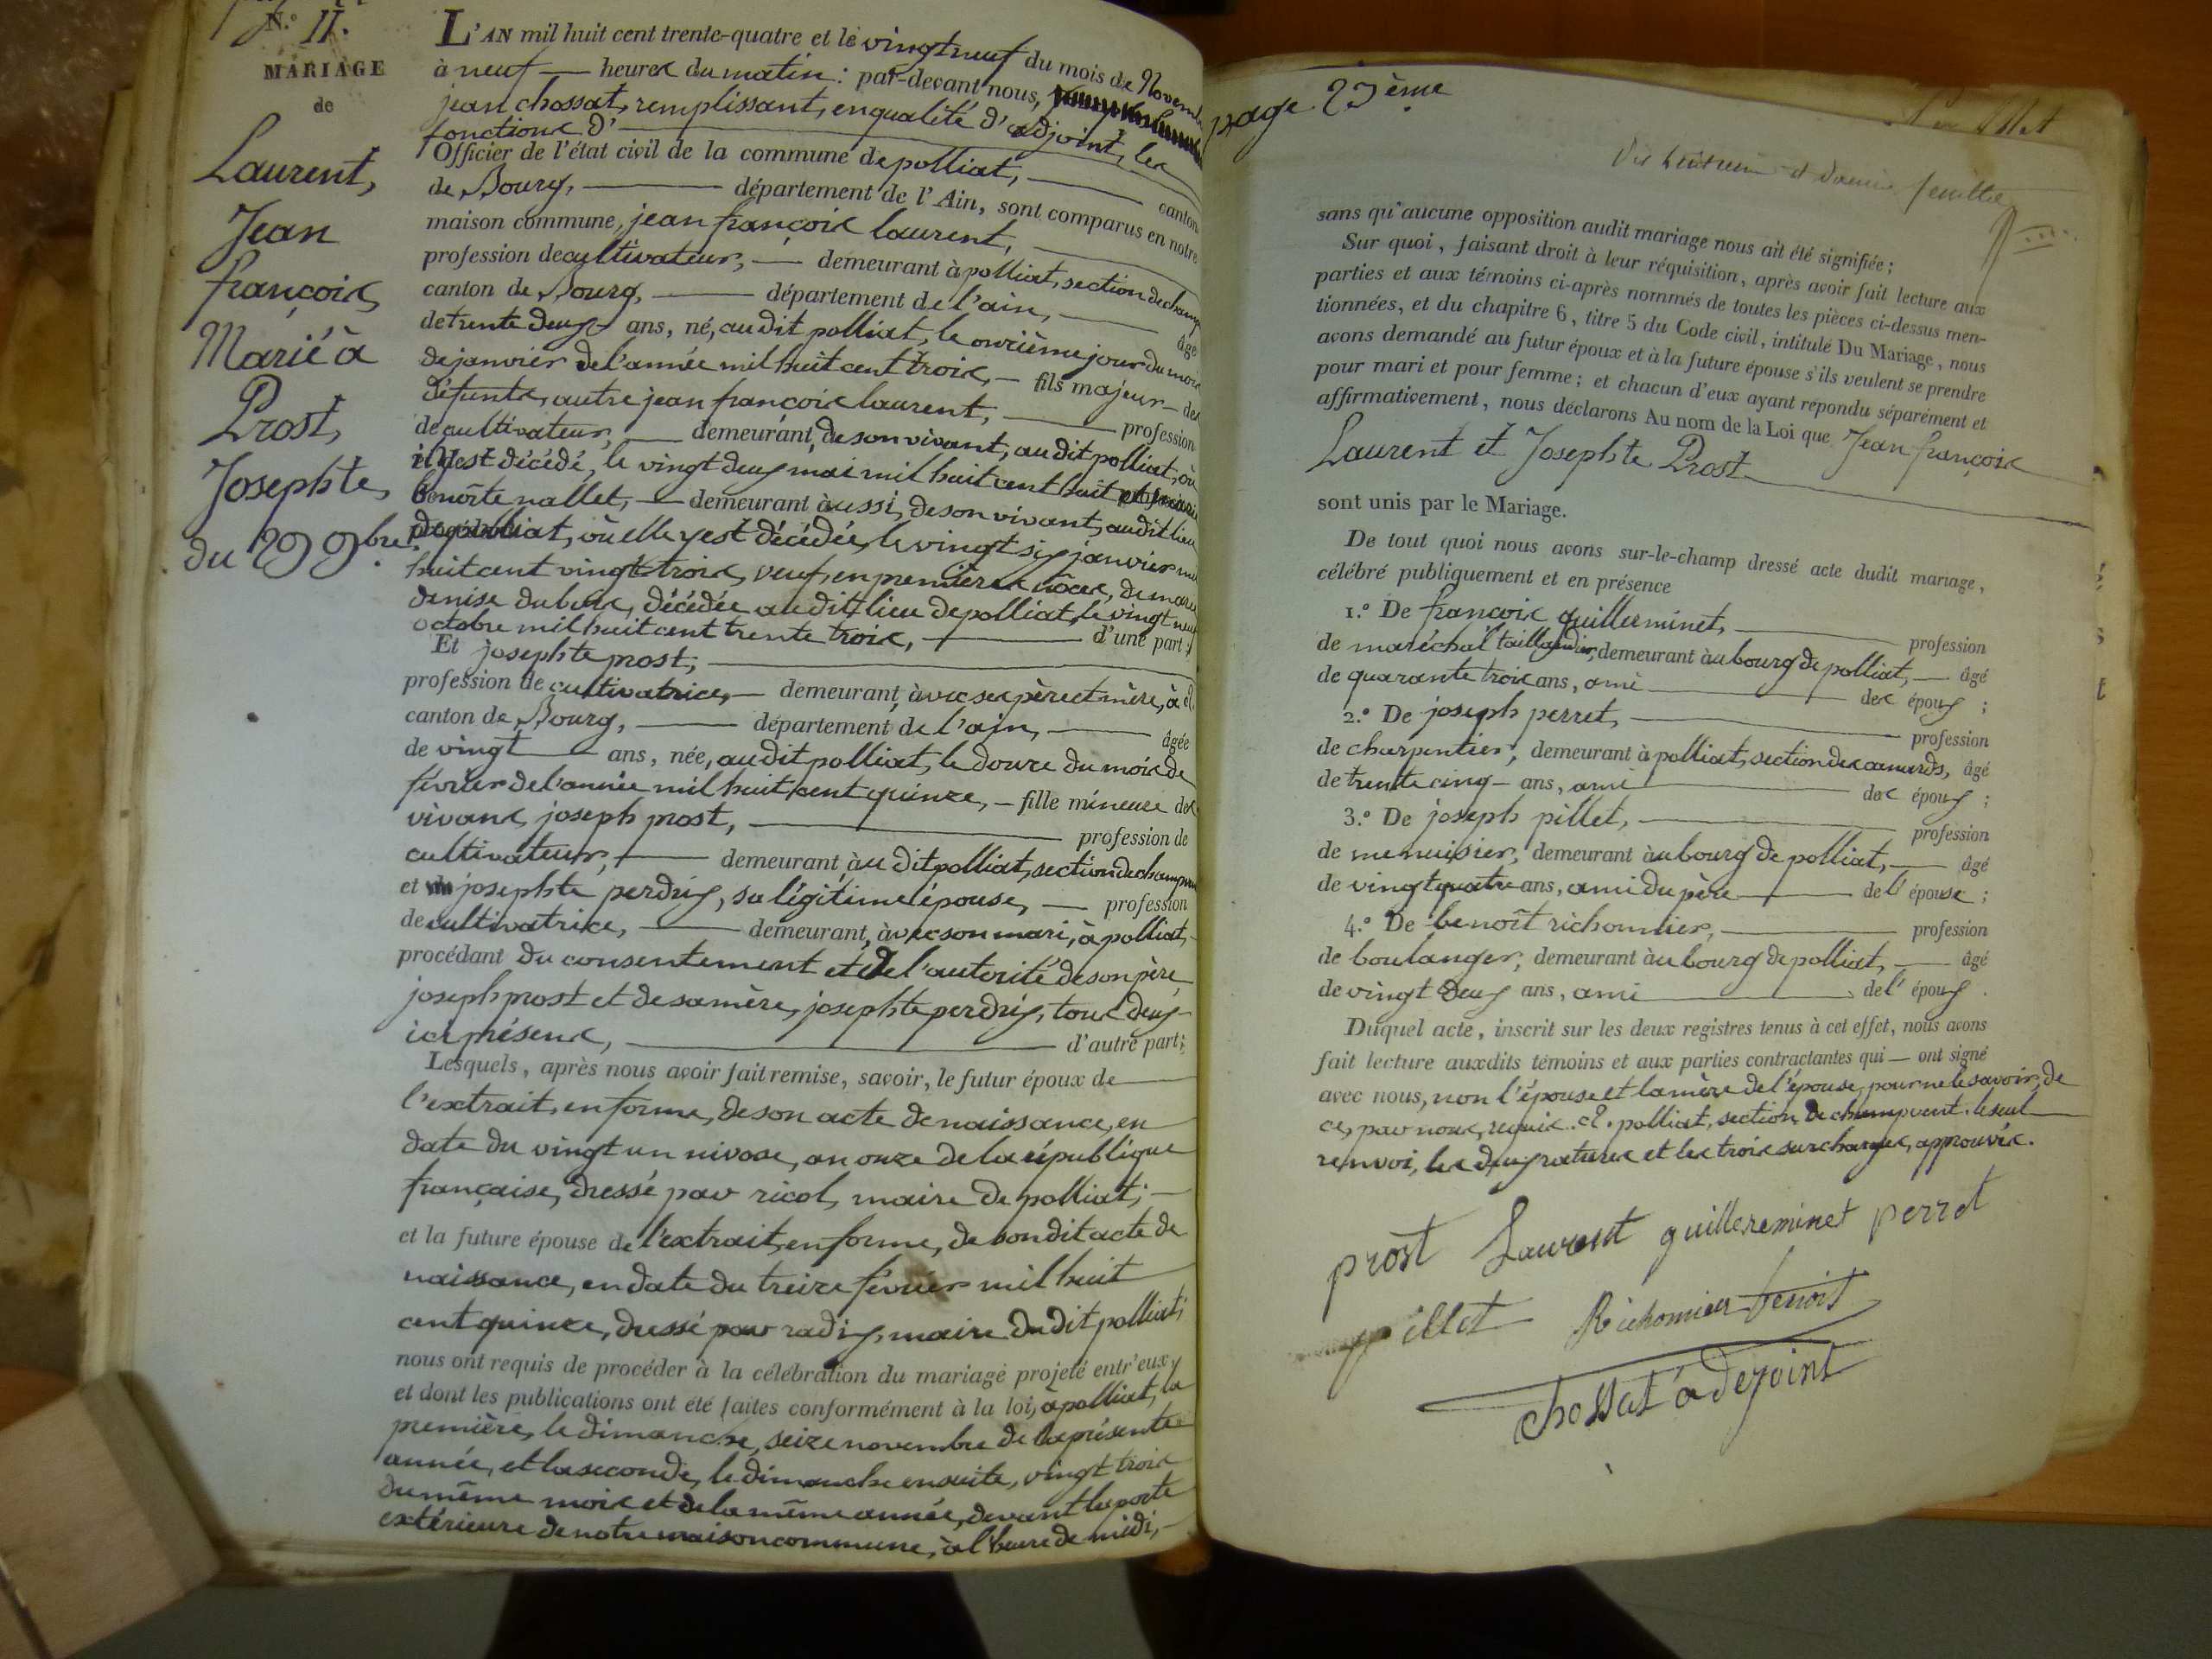 N.° 11.
MARIAGE
de
Laurent,
Jean
françois,
Marié à
Prost,
Josephte,
du 29 9bre.
L'AN mil huit cent trente-quatre et le vingt neuf du mois de Novembre
à neuf — heures du matin : par-devant nous,
jean chossat, remplissant, en qualité d'adjoint, les
fonctions d'
Officier de l'état civil de la commune de polliat, canton
de Bourg, département de l'Ain, sont comparus en notre
maison commune, jean françois laurent,
profession de cultivateur, — demeurant à polliat, section de champ
canton de Bourg, département de l'ain, âgé
de trente deux ans, né, audit polliat, le onzième jour du mois
de janvier de l'année mil huit cent trois, — fils majeur — des
défunts, autre jean françois laurent, profession
de cultivateur, — demeurant, de son vivant, audit polliat, où
il y est décédé, le vingt deux mai mil huit cent huit et de
benoîte nallet, — demeurant aussi, de son vivant, audit lieu
de polliat, où elle y est décédée, le vingt six janvier mil
huit cent vingt trois, veuf, en premières nôces, de marie
denise dubois, décédée audit lieu de polliat, le vingt neuf
octobre mil huit cent trente trois, d'une part;
Et josephte prost,
profession de cultivatrice, — demeurant, avec ses père et mère, à
canton de Bourg, département de l'ain, âgée
de vingt ans, née, audit polliat, le douze du mois de
février de l'année mil huit cent quinze, — fille mineure des
vivans joseph prost, profession de
cultivateur, demeurant, audit polliat, section de champvent
et josephte perdrix, sa légitime épouse, — profession
de cultivatrice, demeurant, avec son mari, à polliat,
procédant du consentement et de l'autorité de son père
joseph prost et de sa mère, josephte perdrix, tous deux
ici présens, d'autre part;
Lesquels, après nous avoir fait remise, savoir, le futur époux de
l'extrait, en forme, de son acte de naissance, en
date du vingt un nivose, an onze de la république
française, dressé par ricol, maire de polliat;
et la future épouse de l'extrait, en forme, de son dit acte de
naissance, en date du treize février mil huit
cent quinze, dressé par radix, maire du dit polliat;
nous ont requis de procéder à la célébration du mariage projeté entr'eux,
et dont les publications ont été faites conformément à la loi, à polliat, la
première, le dimanche, seize novembre de la présente
année, et la seconde, le dimanche ensuite, vingt trois
du même mois et de la même année, devant la porte
extérieure de notre maison commune, à l'heure de midi,
page 23ème
feuillet
sans qu'aucune opposition audit mariage nous ait été signifiée;
Sur quoi, faisant droit à leur réquisition, après avoir fait lecture aux
parties et aux témoins ci-après nommés de toutes les pièces ci-dessus men-
tionnées, et du chapitre 6, titre 5 du Code civil, intitulé Du Mariage, nous
avons demandé au futur époux et à la future épouse s'ils veulent se prendre
pour mari et pour femme; et chacun d'eux ayant répondu séparément et
affirmativement, nous déclarons Au nom de la Loi que Jean françois
Laurent et Josephte Prost
sont unis par le Mariage.
De tout quoi nous avons sur-le-champ dressé acte dudit mariage,
célébré publiquement et en présence
1.° De françois guilleminet, profession
de maréchal taillandier, demeurant au bourg de polliat, — âgé
de quarante trois ans, ami des époux ;
2.° De joseph perret, profession
de charpentier, demeurant à polliat, section des canards, âgé
de trente cinq — ans, ami des époux ;
3.° De joseph pillet, profession
de menuisier, demeurant au bourg de polliat, — âgé
de vingt quatre ans, ami du père de l'épouse ;
4.° De benoît richomier, profession
de boulanger, demeurant au bourg de polliat, — âgé
de vingt deux ans, ami de l'époux.
Duquel acte, inscrit sur les deux registres tenus à cet effet, nous avons
fait lecture auxdits témoins et aux parties contractantes qui — ont signé
avec nous, non l'épouse et la mère de l'épouse, pour ne le savoir, de
ce, par nous, requis. polliat, section de champvent. le seul
renvoi, les deux ratures et les trois surcharges, approuvés.
prost Laurent guillereminet perret
pillet Richomier benoit
chossat adejoint